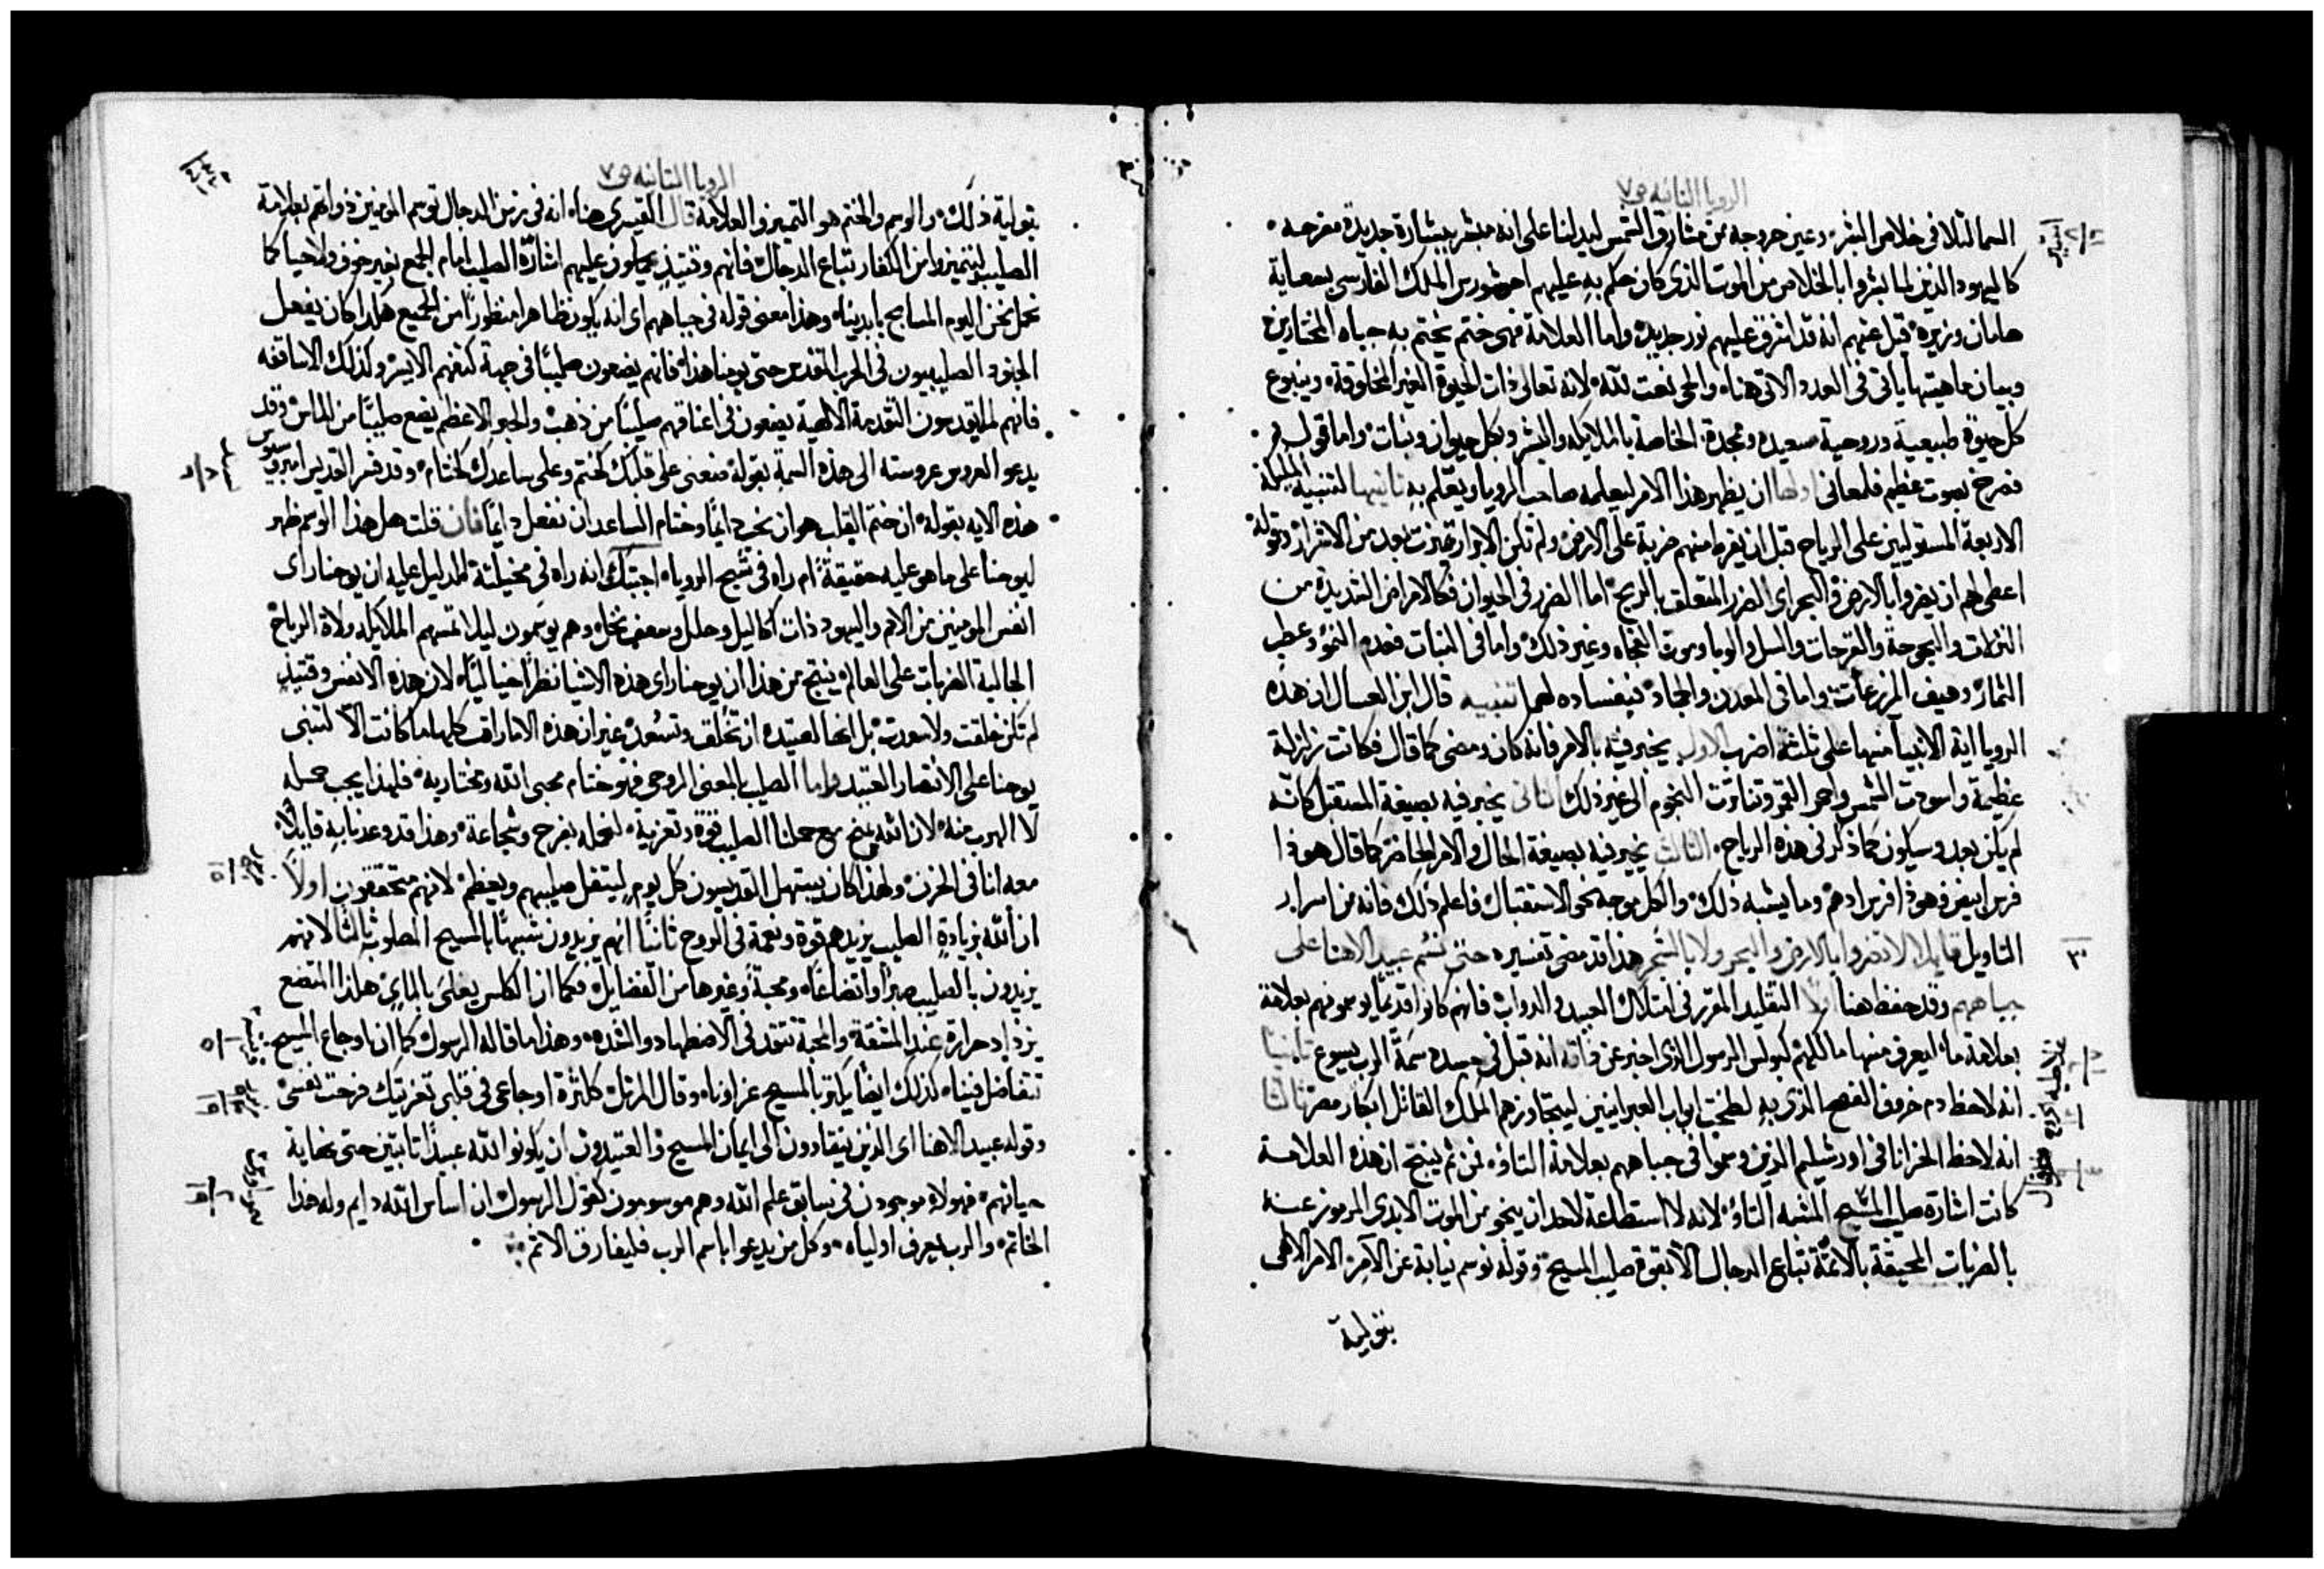 الرويا الثانيه ص٧
السما لتلافي خلاص البشر وعين خروجه من مشارق الشمس ليدلنا على انه مبشر ببشارة جديدة مفرحه
كاليهود الذين لما بشروا بالخلاص من الموت الذي كان حكم به عليهم احشورس الملك الفارسي بسعاية
هامان وزيره قيل عنهم انه قد اشرق عليهم نور جديد واما العلامة فهي ختم يختم به جباه المختارين
وبيان ماهيتها ياتي في العدد الاتي هناه والحي نعت لله لانه تعالى ذات الحيوة الغير المخلوقة وينبوع
كل حيوة طبيعية وروحية سعيده وممجدة الخاصة بالملايكه والبشر وبكل حيوان ونبات واما قوله
فصرخ بصوت عظيم فلمعاني اولها ان يظهر هذا الامر ليعلمه صاحب الرويا ويعلم به ثانيها لتنبيه الملايكة
الاربعة المستوليين على الرياح قبل ان يفرط منهم ضربة على الارض ولم تكن الابرار تميزت بعد من الاشرار وقوله
اعطي لهم ان يضروا بالارض والبحر اي الضرر المتعلق بالريح اما الضرر في الحيوان فكالامراض الشديدة من
النزلات والبحوحة والقرحات والسل والوبا وموت الفجاه وغير ذلك واما في النبات فعدم النمو وعطب
الثمار وهيف المزرعات واما في المعدن والجماد فبفساده لهما تنبيه قال ابن العسال ان هذه
الرويا اية الانبيا منها على ثلثة اضرب الاول يخبر فيه بالامر فانه كان ومضى كما قال فكانت زلزلة
عظيمة واسودت الشمس واحمر القمر وتناثرت النجوم الى غير ذلك الثاني يخبر فيه بصيغة المستقبل كانه
لم يكن بعد وسيكون كما ذكر في هذه الرياح الثالث يخبر فيه بصيغة الحال والامر الحاضر كما قال هوذا
فرس ابيض وهوذا فرس ادهم وما يشبه ذلك والكل موجه نحو الاستقبال فاعلم ذلك فانه من اسرار
التاويل قايلا لا تضروا بالارض والبحر ولا بالشجر هذا قد مضى تفسيره حتى نسم عبيد الاهنا على
جباههم وقد حفظ هنا اولا التقليد المقرر في امتلاك العبيد والدواب فانهم كانوا قديما يوسمونهم بعلامة
بعلامة ما ليعرف منها مالكهم كبولس الرسول الذي اخبر عن ذاته انه قبل في جسده سمة الرب يسوع ثانيا
انه لاحظ دم خروف الفصح الذي به لطخت ابواب العبرانيين ليتجاوزهم الملك القاتل ابكار مصر ثالثا
انه لاحظ الحزانا في اورشليم الذين وسموا في جباههم بعلامة التاو فمن ثم ينتج ان هذه العلامة
كانت اشارة صليب المسيح المشبه التاو لانه لا استطاعة لاحد ان ينجو من الموت الابدي المرموز عنه
بالضربات المحيقة بالائمة تباع الدجال الا بقوة صليب المسيح وقوله نوسم نيابة عن الامر الالهي
بتولية
الرويا الثانيه ص٧
بتولية ذلك والوسم والختم هو التميز والعلامة قال القيسري هنا انه في زمن الدجال توسم المومنين ذواتهم بعلامة
الصليب ليتميزوا من الكفار تباع الدجال فانهم وقتيذ يحملون عليهم اشارة الصليب امام الجمع بغير خوف ولا حيا كما
نحمل نحن اليوم المسابح بايدينا وهذا معنى قوله في جباههم اي انه يكون ظاهرا منظورا من الجميع هكذا كان يفعل
الجنود الصليبيون في الحرب المقدس حتى يومنا هذا فانهم يضعون صليبا في جهة كتفهم الايسر وكذلك الاساقفه
فانهم لما يقدمون التقدمة الالهية يضعون في اعناقهم صليبا من ذهب والحبر الاعظم يضع صليبا من الماس وقد
يدعو العروس عروسته الى هذه السمة بقوله ضعني على قلبك كختم وعلى ساعدك كختام وقد فسر القديس امبروسيوس
هذه الايه بقوله ان ختم القلب هو ان نحب دايما وختام الساعد ان نفعل دايما فان قلت هل هذا الوسم ظهر
ليوحنا على ما هو عليه حقيقة ام راه في شبح الرويا اجبتك انه راه في مخيلته الدليل عليه ان يوحنا راى
انفس المومنين من الامم واليهود ذات اكاليل وحلل وسعف نخل وهم يوسمون ليلا تمسهم الملايكه ولاة الرياح
الجالبة الضربات على العالم ينتج من هذا ان يوحنا راى هذه الاشيا نظرا خياليا لان هذه الانفس وقتيذ
لم تكن خلقت ولا سعدت بل انها العتيده ان تخلق وتسعد غير ان هذه الامارات كلها ما كانت الا لتنبي
يوحنا على الانتصار العتيد واما الصليب بالمعنى الروحي فهو ختام محبي الله ومختاريه فلهذا يجب حمله
لا الهرب منه لان الله يمنح مع حملنا الصليب قوة وتعزية لنحمله بفرح وشجاعة وهذا قد وعدنا به قايلا
معه انا في الحزن ولهذا كان يبتهل القديسون كل يوم ليتقل صليبهم ويعظم لانهم متحققون اولا
ان الله بزيادة الصليب يزيدهم قوة ونعمة في الروح ثانيا انهم يزيدون شبها بالمسيح المصلوب ثالثا لانهم
يزيدون بالصليب صبرا واتضاعا ومحبة وغيرها من الفضايل فكما ان الكلس يغلى بالماء هكذا المتضع
يزداد حرارة عند المشقة والمحبة تتقد في الاضطهاد والشده وهذا ما قاله الرسول كما ان اوجاع المسيح
تتفاضل فينا كذلك ايضا يكثر بالمسيح عزاونا وقال المرتل ككثرة اوجاعي في قلبي تعزيتك فرحت نفسي
وقوله عبيد الاهنا اي الذين ينقادون الى ايمان المسيح والعتيدون ان يكونوا لله عبيدا ثابتين حتى نهاية
حياتهم فهولاء موجودون في سابق علم الله وهم موسومون كقول الرسول ان اساس الله دايم وله هذا
الخاتم والرب يعرف اولياه وكل من يدعوا باسم الرب فليفارق الاثم